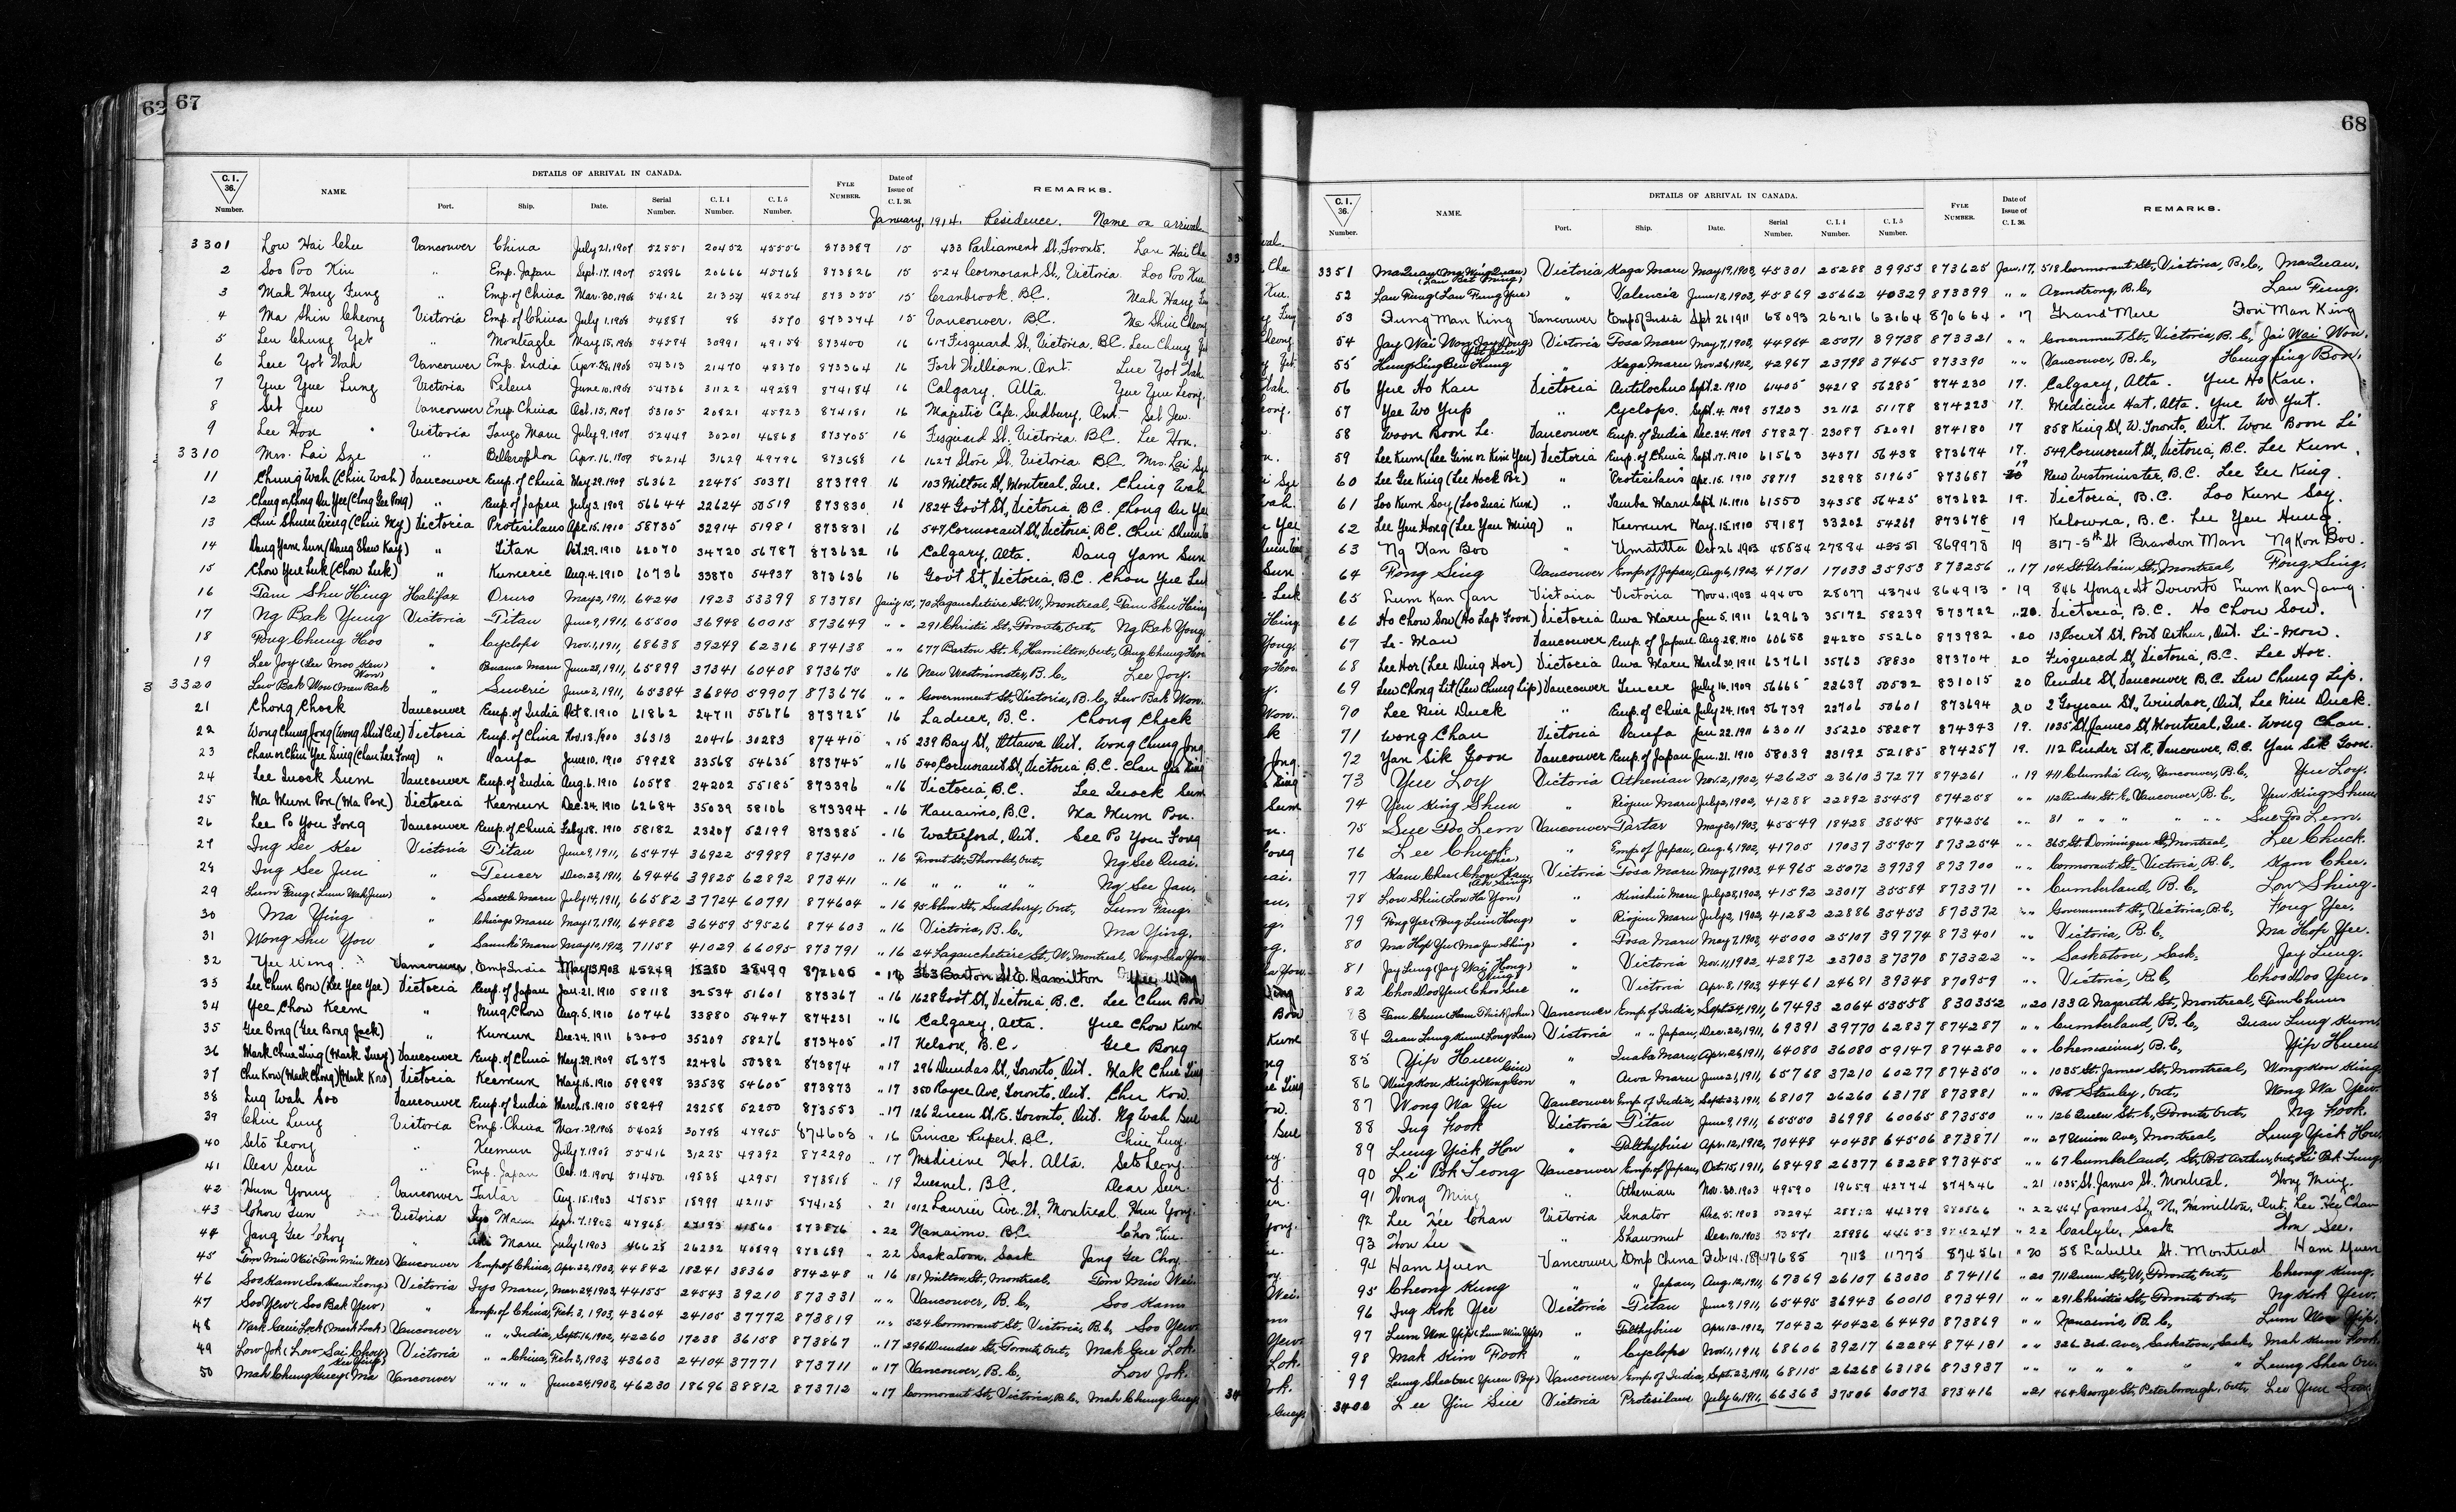 67
C.I. 36. Number.
NAME.
DETAILS OF ARRIVAL IN CANADA.
Port. Ship. Date. Serial Number. C.I. 4 Number. C.I. 5 Number.
FYLE NUMBER.
Date of Issue of C.I. 36.
REMARKS.
January, 1914. Residence. Name on arrival
3301 Low Hai Chu Vancouver China July 21, 1907 52551 20452 45556 873389 15 433 Parliament St. Toronto. Lau Hai Che
2 Soo Poo Kiu " Emp. Japan Sept. 17. 1907 52896 20666 45768 873826 15 524 Cormorant St, Victoria Loo Poo Kiu
3 Mah Hang Fung " Emp. of China Mar. 30. 1908 54126 21354 48254 873355 15 Cranbrook, B.C. Mah Hang
4 Ma Shin Cheong Victoria Emp. of China July 1. 1908 54887 98 5570 873374 15 Vancouver. B.C. Ma Shin Cheong
5 Leu Chung Yet " Monteagle May 15, 1908 54584 30991 49158 873400 16 617 Fisguard St, Victoria. B.C. Leu Chung
6 Lee Yot Wah Vancouver Emp. India Apr. 28, 1908 54313 21470 48370 873364 16 Fort William. Ont. Lue Yot Wah
7 Yue Yue Lung Victoria Peleus June 10. 1908 54736 31122 49289 874184 16 Calgary. Alta. Yue Yue Leong
8 Set Jew Vancouver Emp. China Oct. 15, 1907 53105 20821 45923 874181 16 Majestic Cafe. Sudbury, Ont Set Jew
9 Lee Hon Victoria Tango Maru July 9. 1907 52449 30201 46868 873705 16 Fisguard St. Victoria. B.C. Lee Hon.
3310 Mrs. Lai Sze " Bellerophon Apr. 16. 1909 56214 31629 49796 873688 16 1627 Store St. Victoria B.C. Mrs. Lai Sze
11 Chung Wah (Chin Wah) Vancouver Emp. of China May 29. 1909 56362 22475 50371 873799 16 103 Milton St, Montreal, Que. Ching Wah
12 Vancouver Emp. of Japan July 3. 1909 56644 22624 50519 873830 16 1824 Gov't St, Victoria B.C.
13 Victoria Protesilaus Apr. 15. 1910 58735 32914 51981 873831 16 547 Cormorant St, Victoria, B.C.
14 Dang Yam Sun (Dang Shew Kay) " Titan Oct. 29. 1910 62070 34720 56787 873632 16 Calgary, Alta. Dang Yam Sun
15 Chow Yue Luk (Chow Luk) " Kumeric Aug. 4. 1910 60736 33870 54937 873636 16 Gov't St, Victoria, B.C. Chow Yue Luk
16 Tam Shu Hing Halifax Oruro May 2, 1911, 64240 1923 53399 873781 Jan'y 15, 70 Lagauchetiere St. W, Montreal, Tam Shu Hing
17 Ng Bak Yung Victoria Titan June 9, 1911, 65500 36948 60015 873649 " " 291 Christie St, Toronto, Ont., Ng Bak Yong
18 Pong Chung Hoo " Cyclops Nov. 1, 1911, 68638 39249 62316 874138 " " 677 Barton St. E, Hamilton, Ont.,
19 Lee Joy (Lee Moo Kew) " June 28, 1911, 65899 37341 60408 873675 " 16 New Westminster, B.C., Lee Joy.
3320 Low Bak Won " Suveric June 3, 1911, 65384 36840 59907 873676 " " Government St, Victoria, B.C., Low Bak Won.
21 Chong Chock Vancouver Emp. of India Oct 8. 1910 61862 24711 55676 873725 16 Ladner, B.C. Chong Chock
22 Victoria Emp. of China Nov. 13. 1900 36313 20416 30283 874410 " 15 239 Bay St, Ottawa Ont. Wong Chung Jong
23 " June 10. 1910 59928 33568 54635 873745 " 16 540 Cormorant St, Victoria B.C.
24 Lee Quock Sum Vancouver Emp. of India Aug. 6. 1910 60578 24202 55185 873396 " 16 Victoria, B.C. Lee Quock Sum
25 Ma Mum Pon (Ma Pon) Victoria Keemun Dec. 24. 1910 62684 35039 58106 873394 " 16 Nanaimo, B.C. Ma Mum Pon.
26 Lee Po You Fong Vancouver Emp. of China Feb'y 18. 1910 58182 23207 52199 873385 " 16 Waterford, Ont. See Po You Fong
27 Ing See Kee Victoria Titan June 9, 1911, 65474 36922 59989 873410 " 16 Front St, Thorold, Ont, Ng See Quai.
28 Ing See Jun " Teucer Dec. 23, 1911, 69446 39825 62892 873411 " 16 " " " " Ng See Jan.
29 " Seattle Maru July 14, 1911, 66582 37724 60791 874604 " 16 95 Elm St, Sudbury, Ont., Lum Fang.
30 Ma Ying " Chicago Maru May 17, 1911, 64882 36459 59526 874603 " 16 Victoria, B.C., Ma Ying.
31 Wong Shu You " Sanuki Maru May 10, 1912, 71158 41029 66095 873791 " 16 24 Lagauchetiere St, W, Montreal, Wong Sha You
32 Yee Wing. Vancouver, Emp India May 13, 1903 45249 18380 38499 872605 " 16 363 Barton St E. Hamilton Yee Wing
33 Lee Chun Bow (Lee Yee Yee) Victoria Emp. of Japan Jan. 21. 1910 58118 32534 51601 873367 " 16 1628 Gov't St, Victoria B.C. Lee Chun Bow
34 Yee Chow Keem " Ning Chow Aug. 5. 1910 60746 33880 54947 874231 " 16 Calgary, Alta. Yue Chow Kum
35 Gee Bong (Gee Bong Jack) " Kumun Dec. 24. 1911 63000 35209 58276 873405 " 17 Nelson, B.C. Gee Bong
36 Vancouver Emp. of China May 29. 1909 56373 22486 50382 873874 " 17 296 Dundas St, Toronto, Ont. Mak Chue Ling
37 Victoria Keemun May 16. 1910 59898 33538 54605 873873 " 17 350 Royce Ave, Toronto, Ont. Chu Kow.
38 Ing Wah Soo Vancouver Emp. of India March 18. 1910 58249 23258 52250 873553 " 17 126 Queen St. E. Toronto, Ont. Ng Wah Sue
39 Chin Lung Victoria Emp. China Mar. 29, 1908 54028 30798 47965 874603 " 16 Prince Rupert. B.C. Chin Luy.
40 Seto Leong " Keemun July 7. 1908 55416 31225 49392 872290 " 17 Medicine Hat. Alta. Seto Leong
41 Dear Sun " Emp. Japan Oct. 12. 1904 51450 19838 42951 873818 " 19 Quesnel. B.C. Dear Sun.
42 Hum Young Vancouver Tartar Aug. 15. 1903 47535 18999 42115 874128 " 21 1012 Laurier Ave. W. Montreal. Hum Yong.
43 Chow Sun Victoria Iyo Maru Sept. 7. 1903 " 22 Nanaimo. B.C.
44 Jang Gee Choy " Maru July 1, 1903 46628 26232 40899 873689 " 22 Saskatoon, Sask Jang Gee Choy.
45 Vancouver Emp. of China, Apr. 22, 1903, 44842 18241 38360 874248 " 16 181 Milton St, Montreal, Tom Min Wai
46 Soo Kam (Soo Kam Leong) Victoria Iyo Maru, Mar. 24, 1903, 44155 24543 39210 873331 " " Vancouver, B.C., Soo Kam
47 Soo Yew (Soo Bak Yew) " Emp. of China, Feb. 3, 1903, 43604 24105 37772 873819 " " 524 Cormorant St, Victoria, B.C, Soo Yew.
48 Vancouver " " India, Sept. 16, 1902, 42260 17238 36158 873867 " 17 296 Dundas St, Toronto, Ont, Mak Gue Lok.
49 Low Jok (Low Sai Choy) Victoria " " China, Feb. 3, 1903, 43603 24104 37771 873711 " 17 Vancouver, B.C., Low Jok.
50 Mah Chung Guey Vancouver " " " June 24, 1903, 46230 18696 38812 873712 " 17 Cormorant St, Victoria, B.C, Mah Chung Guey
68
C.I. 36. Number.
NAME.
DETAILS OF ARRIVAL IN CANADA.
Port. Ship. Date. Serial Number. C.I. 4 Number. C.I. 5 Number.
FYLE NUMBER.
Date of Issue of C.I. 36.
REMARKS.
3351 Ma Quan (Ma Wing Quan) Victoria Kaga Maru May 19, 1903, 45301 25288 39955 873625 Jan. 17, 518 Cormorant St., Victoria, B.C., Ma Quan.
52 Lau Fung (Lau Fung Yue) " Valencia June 12, 1903, 45869 25662 40329 873399 " " Armstrong, B.C., Lau Fung.
53 Fung Man King Vancouver Emp of India Sept 26 1911 68093 26216 63164 870664 " 17 Grand Mere Fon Man King
54 Jay Wai Won Victoria Tosa Maru May 7, 1903, 44964 25071 39738 873321 " " Government St, Victoria, B.C, Jai Wai Won.
55 " Kaga Maru Nov. 26, 1902, 42967 23798 37465 873390 " " Vancouver, B.C., Hung Sing Bow.
56 Yue Ho Kau Victoria Antilochus Sept. 2. 1910 61405 34218 56285 874230 17. Calgary, Alta. Yue Ho Kau.
57 Yee Wo Yup " Cyclops. Sept. 4. 1909 57203 32112 51178 874223 17. Medicine Hat, Alta. Yue Wo Yut.
58 Woon Boon Le. Vancouver Emp. of India Dec. 24. 1909 57827 23087 52091 874180 17 858 King St, W. Toronto, Ont. Won Boon Li
59 Lee Kum (Lee Gim or Kim Yen) Victoria Emp. of China Sept. 17. 1910 61563 34371 56438 873674 17. 549 Cormorant St, Victoria, B.C. Lee Kum.
60 Lee Gee King (Lee Hock Po) " Protesilaus Apr. 15. 1910 58719 32898 51965 873687 19 New Westminster, B.C. Lee Gee King.
61 Loo Kum Soy (Loo Quai Kum) " Tamba Maru Sept. 16. 1910 61550 34358 56425 873682 19. Victoria, B.C. Loo Kum Soy.
62 Lee Yue Hong (Lee Yau Ming) " Keemun May. 15. 1910 59187 33202 54269 873678 19 Kelowna, B.C. Lee Yeu Hung.
63 Ng Kan Boo " Umatilla Oct 26. 1903 48554 27884 43551 869978 19 317-5th St Brandon Man Ng Kon Boo.
64 Fong Sing Vancouver Emp of Japan, Aug. 6, 1902, 41701 17033 35953 873256 " 17 104 St. Urbain St, Montreal, Fong Sing.
65 Lum Kan Jan Victoria Victoria Nov 4. 1903 49400 25077 43744 864913 " 19 846 Yonge St Toronto Lum Kan Jang.
66 Ho Chow Sow (Ho Lap Foon) Victoria Awa Maru Jan. 5. 1911 62963 35172 58239 873722 " 20. Victoria, B.C. Ho Chow Sow.
67 Li-Mau Vancouver Emp. of Japan Aug. 28. 1910 60658 24280 55260 873982 " 20 13 Court St, Port Arthur, Ont. Li-Mow.
68 Lee Hor (Lee Ding Hor) Victoria Awa Maru March 30, 1911 63761 35763 58830 873704 20 Fisguard St, Victoria, B.C. Lee Hor.
69 Lew Chong Lit (Lew Chung Lip) Vancouver Teucer July 16. 1909 56665 22637 50532 831015 20 Pender St, Vancouver B.C. Lew Chung Lip.
70 Lee Nin Duck " Emp. of China July 24. 1909 56739 22706 50601 873694 20 2 Goyeau St, Windsor, Ont, Lee Nin Duck.
71 Wong Chan Victoria Jan. 22. 1911 63011 35220 58287 874343 19. 1035 St, James St, Montreal, Que. Wong Chan.
72 Yan Sik Goon Vancouver Emp. of Japan Jan. 21. 1910 58039 23192 52185 874257 19. 112 Pender St E, Vancouver, B.C. Yan Sik Goon.
73 Yue Loy Victoria Athenian Nov. 2, 1902, 42625 23610 37277 874261 " 19 441 Columbia Ave, Vancouver, B.C., Yue Loy.
74 Yen King Shun " Riojun Maru July 2, 1902, 41288 22892 35459 874258 " " 112 Pender St. E, Vancouver, B.C., Yen King Shun
75 Sue Foo Lem Vancouver Tartar May 30, 1903, 45549 18428 38545 874256 " " 81 " " " " " " Sue Foo Lem.
76 Lee Chuck Emp of Japan, Aug. 6, 1902, 41705 17037 35957 873254 " " 365 St. Dominique St, Montreal, Lee Chuck.
77 Victoria Tosa Maru May 7, 1903, 44965 25072 39739 873700 " " Cormorant St, Victoria, B.C. Kam Chee.
78 Low Shin (Low He Yon) " Kinshiu Maru July 28, 1902, 41592 23017 35584 873371 " " Cumberland, B.C., Low Shing.
79 Fong Yee " Riojun Maru July 2, 1902, 41282 22886 35453 873372 " " Government St, Victoria, B.C., Fong Yee.
80 Ma Hop Yee (Ma Jin Shing) " Tosa Maru May 7, 1903, 45000 25107 39774 873401 " " Victoria, B.C., Ma Hop Yee.
81 Jay Lung (Jay Wai Hong) " Victoria Nov. 11, 1902, 42872 23703 37370 873322 " " Saskatoon, Sask. Jay Lung.
82 " Victoria Apr. 8, 1903, 44461 24691 39348 870959 " " Victoria, B.C, Choo Doo Yen.
83 Vancouver Emp. of India, Sept. 24, 1911, 67493 2064 53558 830352 " 20 133 A Nazareth St, Montreal, Tam Chun
84 Victoria " " Japan, Dec. 22, 1911, 69391 39770 62837 874287 " " Cumberland, B.C., Quan Lung Kum.
85 Yip Huen " Inaba Maru, Apr. 26, 1911, 64080 36080 59147 874280 " " Chemainus, B.C, Yip Huen
86 " Awa Maru June 21, 1911, 65768 37210 60277 874350 " " 1035 St. James St, Montreal, Wong Kon King.
87 Wong Wa Yu Vancouver Emp. of India, Sept. 23, 1911, 68107 26260 63178 873881 " " Port Stanley, Ont., Wong Wa Yew.
88 Ing Hook Victoria Titan June 9, 1911, 65550 36998 60065 873550 " " 126 Queen St. E, Toronto, Ont, Ng Hook.
89 Lung Yick How " Talthybius Apr. 12, 1912, 70448 40438 64506 873871 " " 27 Union Ave, Montreal, Lung Yick How.
90 Li Pok Leong Vancouver Emp of Japan, Oct. 15, 1911, 68498 26377 63288 873455 " " 67 Cumberland, St, Port Arthur, Ont, Li Bok Lung
91 Wong Ming " Athenian Nov. 30. 1903 49590 19659 42774 874346 " 21 1035 St. James St. Montreal. Wong Ming.
92 Lee Kee Chan Victoria Senator Dec. 5. 1903 44379 " 22 464 James St, N, Hamilton, Ont. Lee Kee Chan
93 Won See " Shawmut Dec. 10, 1903 28986 " 22 Carlyle, Sask Won See.
94 Ham Yuen Vancouver Emp China Feb. 14. 17685 7113 11775 874561 " 20 58 Labelle St. Montreal Ham Yuen
95 Cheong Kung " " Japan, Aug. 12, 1911, 67369 26107 63030 874116 " 20 711 Queen St, W, Toronto, Ont, Cheong Kung.
96 Ing Kok Yee Victoria Titan June 9, 1911, 65495 36943 60010 873491 " " 291 Christie St, Toronto, Ont, Ng Kok Yew.
97 Lum Won Yip (Lum Win Yip) " Talthybius Apr. 12, 1912, 70432 40422 64490 873869 " " Nanaimo, B.C, Lum Won Yip.
98 Mak Kim Fook " Cyclops Nov. 1, 1911, 68606 39217 62284 874181 " " 326 3rd. Ave, Saskatoon, Sask, Mak Kum Fook.
99 Vancouver Emp. of India, Sept. 23, 1911, 68115 26268 63186 873937 " " " " " " " Leung Shea Ou.
3400 Lee Yin Sue Victoria Protesilaus July 6, 1911, 66363 37506 60573 873416 " 21 464 George St, Peterborough, Ont, Lee Yuen